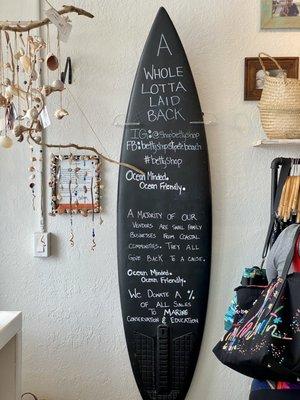 A
WHOLE
LOTTA
LAID
BACK
IG: @shopbettyshop
FB: bettyshopstpetebeach
#bettyshop
Ocean Minded.
Ocean Friendly.
A MAJORITY OF OUR
VENDORS ARE SMALL FAMILY
BUSINESSES FROM COASTAL
COMMUNITIES. THEY ALL
GIVE BACK TO A CAUSE.
Ocean Minded.
Ocean Friendly.
WE DONATE A %
OF ALL SALES
TO MARINE
CONSERVATION & EDUCATION